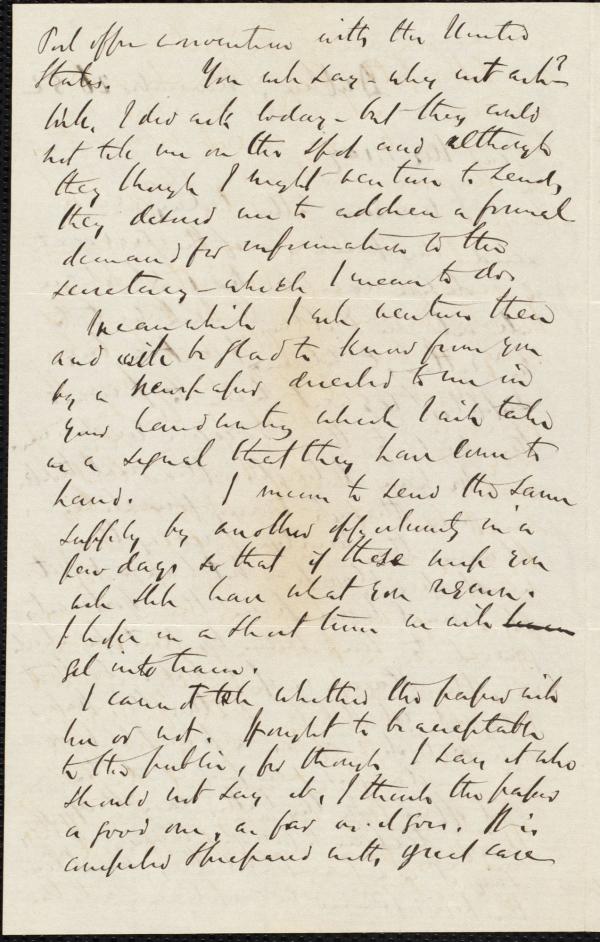 Post office convention with the United
States. You will say - why not ask?
Well, I did ask today - but they could
not tell me on the spot and although
they though I might venture to send,
they desired me to address a formal
demand for information to the
secretary - which I mean to do.
Meanwhile I will venture them
and will be glad to know from you
by a newspaper directed to me in
your handwriting which I will take
as a signal that they have come to
hand. I mean to send the same
supply by another opportunity in a
few days so that if these miss you
will still have what you require.
I hope in a short time we will
get into train.
I cannot tell whether the paper will
live or not. It ought to be acceptable
to the public, for though I say it who
should not say it, I think the paper
a good one, as far as it goes. It is
compiled & prepared with great care